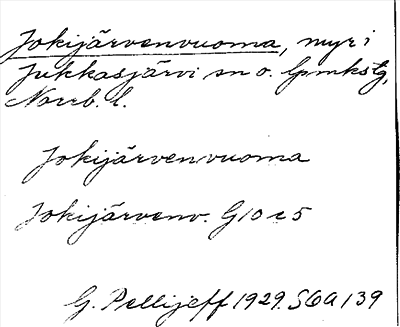 Jokijärvenvuoma, myr i
Jukkasjärvi sn o. lpmkstg,
Norrb. l.
Jokijärvenvuoma
Jokijärvenv. G10 c5
G. Pellijeff 1929. S6A 139